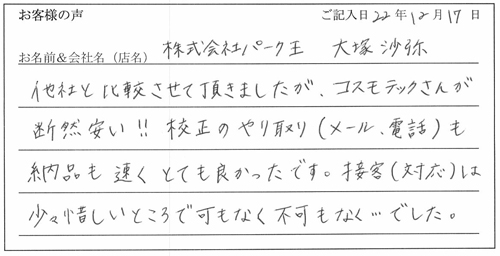 お客様の声 ご記入日 22 年 12 月 17 日
お名前&会社名(店名) 株式会社パーク王 大塚沙弥
他社と比較させて頂きましたが、コスモテックさんが
断然安い!! 校正のやり取り(メール、電話)も
納品も速くとても良かったです。接客(対応)は
少々惜しいところで可もなく不可もなく…でした。